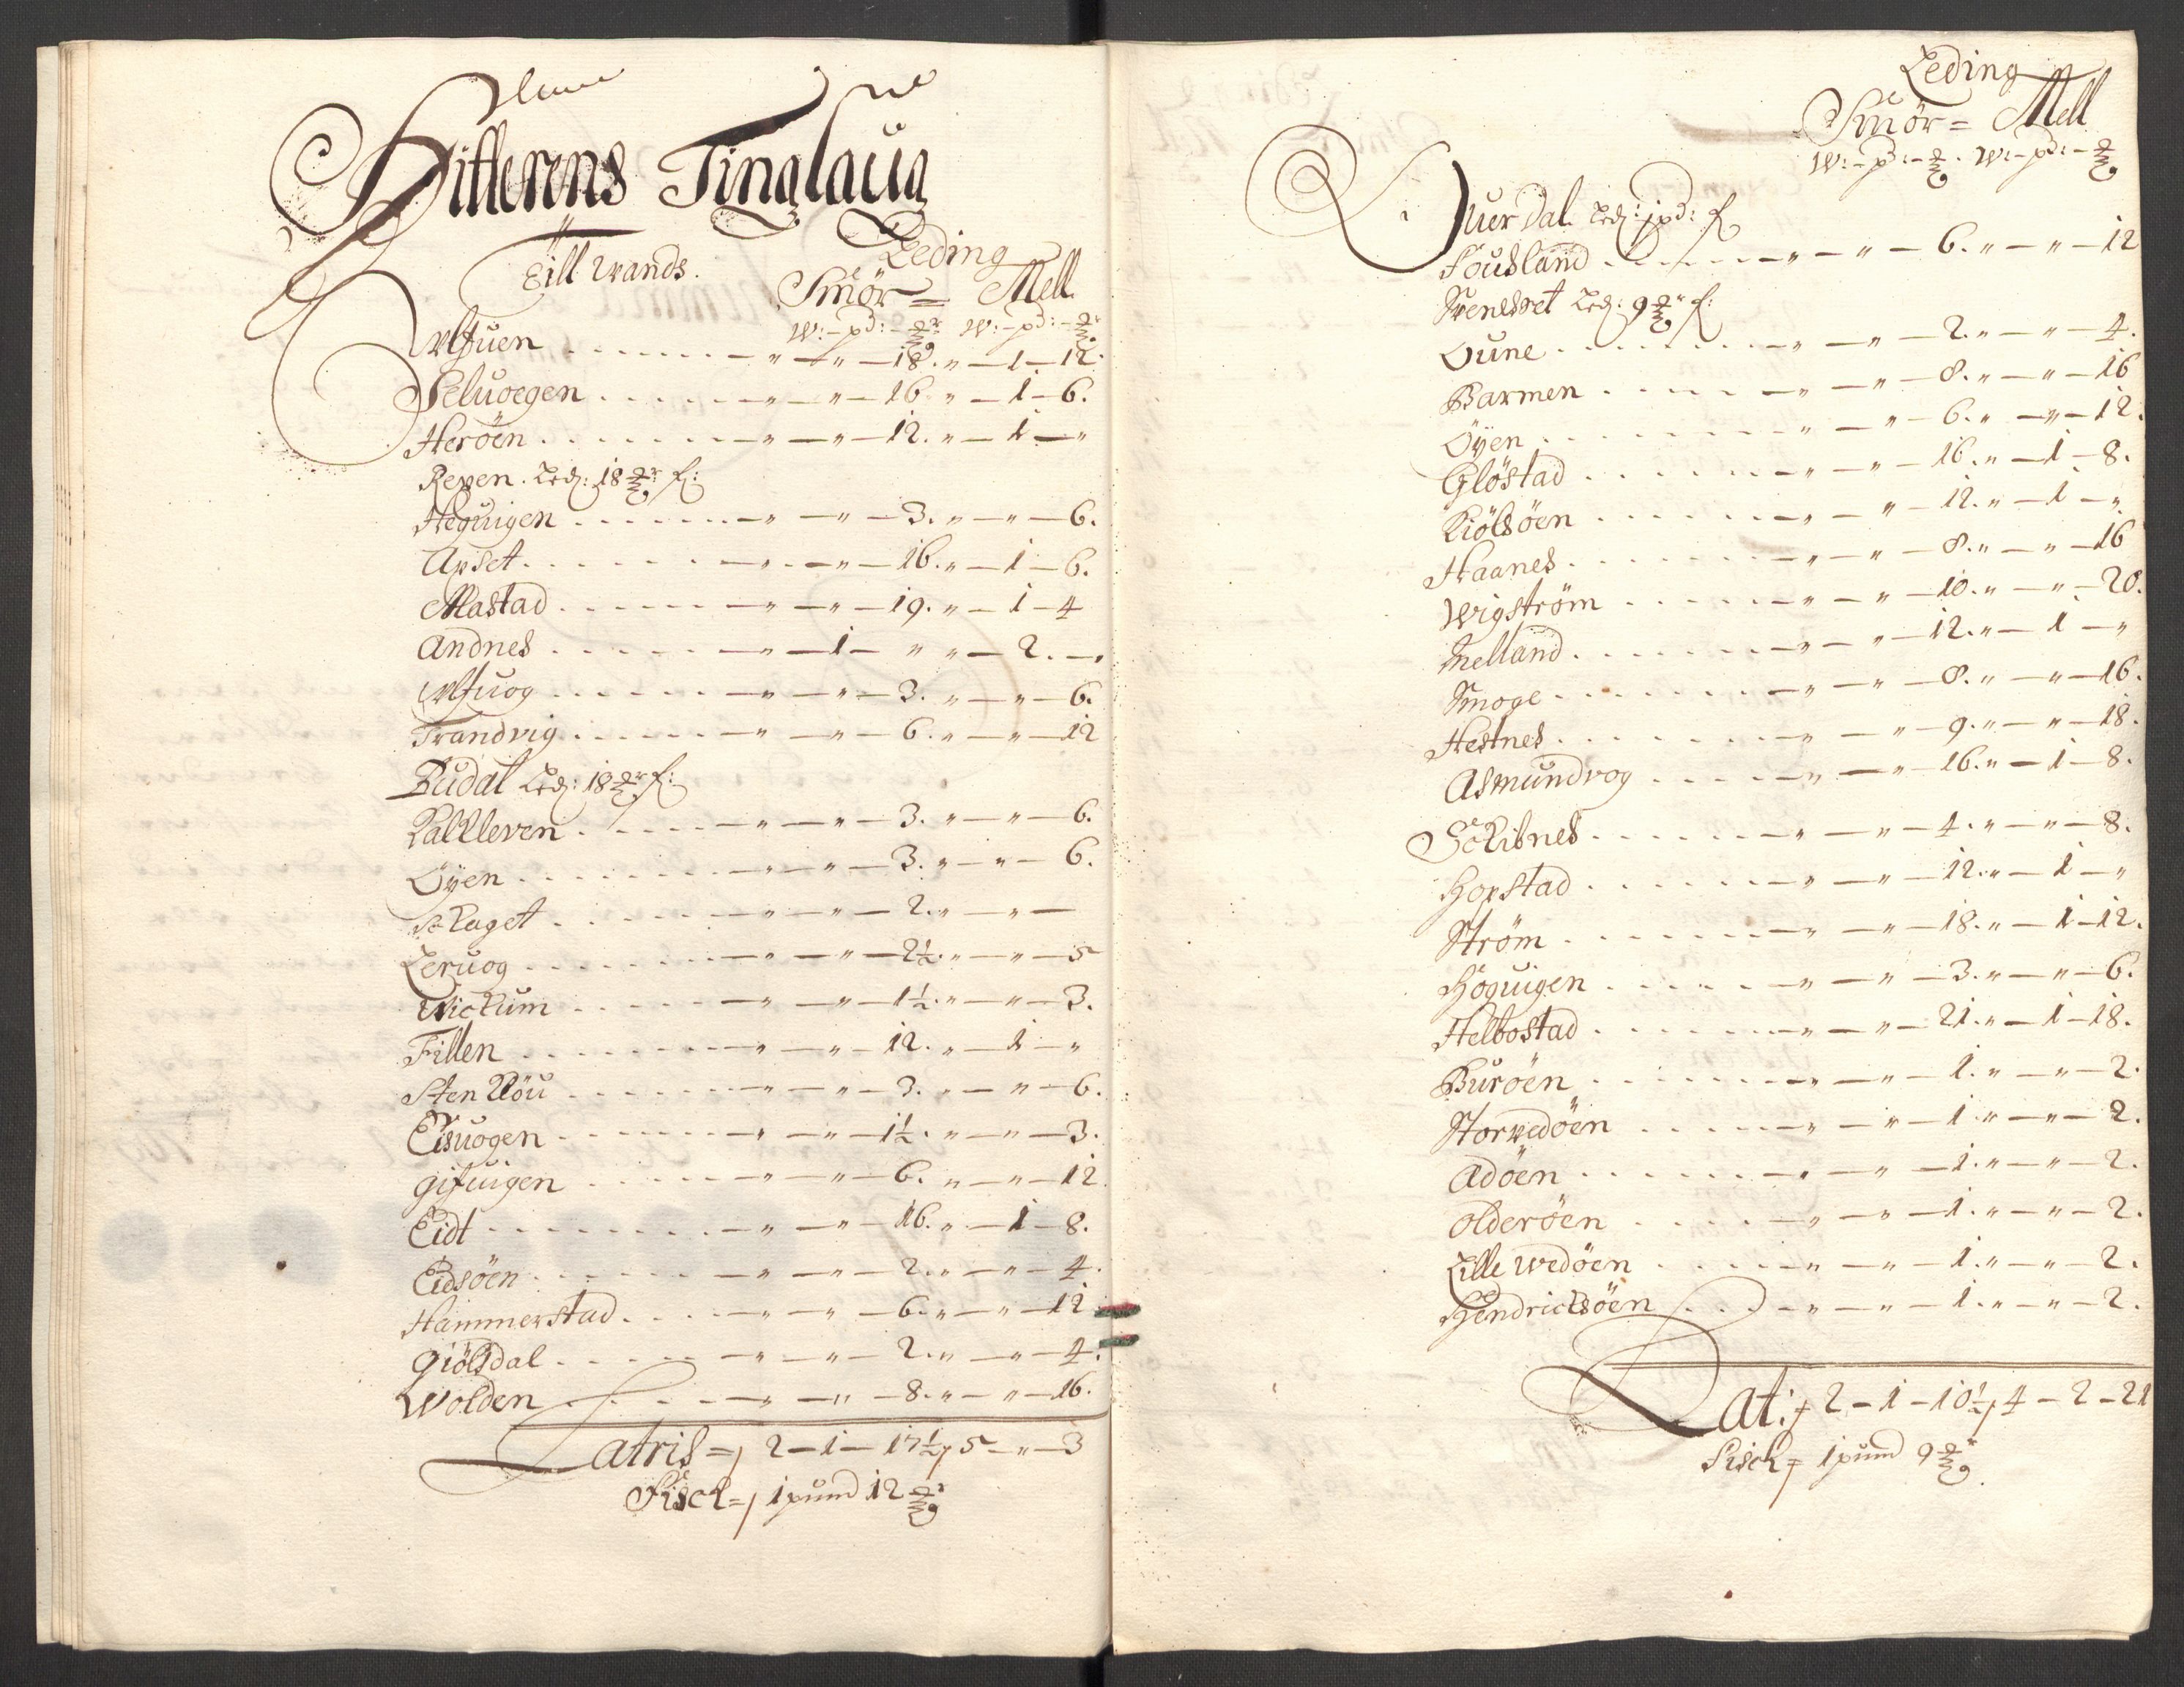 Hitterens Tinglaug
Eill Wands.
Leding
Smör = Mell
W: - pd: - W: - pd: -
Ulfuen . . . . . . . - „ - „ - 18. „ - 1 - 12.
Seluoegen . . . . . - „ - „ - 16. „ - 1 - 6.
Heröen . . . . . . . - „ - „ - 12. „ - 1 - „
Reven. Led: 18 f:
Heguigen . . . . . . . - „ - „ - 3. „ - „ - 6.
Apset . . . . . . - „ - „ - 16. „ - 1 - 6.
Mastad . . . . . . - „ - „ - 19. „ - 1 - 4
Andnes . . . . . . - „ - 1 - „ „ - 2. - „
Ulfuog . . . . . . - „ - „ - 3. „ - „ - 6.
Trandvig . . . . . . - „ - „ - 6. „ - „ - 12
Budal Led: 18 f:
Kalkleven . . . . . - „ - „ - 3. „ - „ - 6.
Öyen . . . . . . . - „ - „ - 3. „ - „ - 6.
Sckaget . . . . . . - „ - „ - 2. „ - „ -
Leruog . . . . . . - „ - „ - 2½. „ - „ - 5
Wickum . . . . . - „ - „ - 1½. „ - „ - 3.
Fillen . . . . . . . - „ - „ - 12. „ - 1 - „
Sten Köu . . . . . . - „ - „ - 3. „ - „ - 6.
Eisuogen . . . . . . - „ - „ - 1½. „ - „ - 3.
Gifuigen . . . . . - „ - „ - 6. „ - „ - 12.
Eidt . . . . . . . - „ - „ - 16. „ - 1 - 8.
Eidsöen . . . . . . - „ - „ - 2. „ - „ - 4.
Hammerstad . . . . - „ - „ - 6. „ - „ - 12
Giölsdal . . . . . - „ - „ - 2. „ - „ - 4.
Wolden . . . . . - „ - „ - 8. „ - „ - 16.
Latris = / 2 - 1 - 17½ / 5 - „ - 3
Fisck = / 1 pund 12
Leding
Smör = Mell
W: - pd: - W: - pd: -
Quer Dal Led: 1 pd: f
Sousland . . . . . . - „ - „ - 6. „ - „ - 12
Svenskset Led: 9 f:
Oune . . . . . . . - „ - „ - 2. „ - „ - 4.
Barmen . . . . . . - „ - „ - 8. „ - „ - 16
Öyen . . . . . . . - „ - „ - 6. „ - „ - 12.
Glöstad . . . . . . - „ - „ - 16. „ - 1 - 8.
Kiölsöen . . . . . - „ - „ - 12. „ - 1 - „
Haanes . . . . . . - „ - „ - 8. „ - „ - 16
Wigström . . . . . - „ - „ - 10. „ - „ - 20.
Melland . . . . . . - „ - „ - 12. „ - 1 - „
Smoge . . . . . . . - „ - „ - 8. „ - „ - 16.
Hestnes . . . . . . - „ - „ - 9. „ - „ - 18.
Asmundvog . . . . . - „ - „ - 16. „ - 1 - 8.
Sckibnes . . . . . . - „ - „ - 4. „ - „ - 8.
Hopstad . . . . . . - „ - „ - 12. „ - 1 - „
Ström . . . . . . . - „ - „ - 18. „ - 1 - 12.
Höguigen . . . . . - „ - „ - 3. „ - „ - 6.
Helbostad . . . . . - „ - „ - 21. „ - 1 - 18.
Buröen . . . . . . - „ - „ - 1. „ - „ - 2.
Storvedöen . . . . . - „ - „ - 1. „ - „ - 2.
Adöen . . . . . . . - „ - „ - 1. „ - „ - 2.
Olderöen . . . . . - „ - „ - 1. „ - „ - 2.
Lille Wedöen . . . . - „ - „ - 1. „ - „ - 2.
Hendricksöen . . . - „ - „ - 1. „ - „ - 2.
Lat: / 2 - 1 - 10½ / 4 - 2 - 21
Fisck = / 1 pund 9